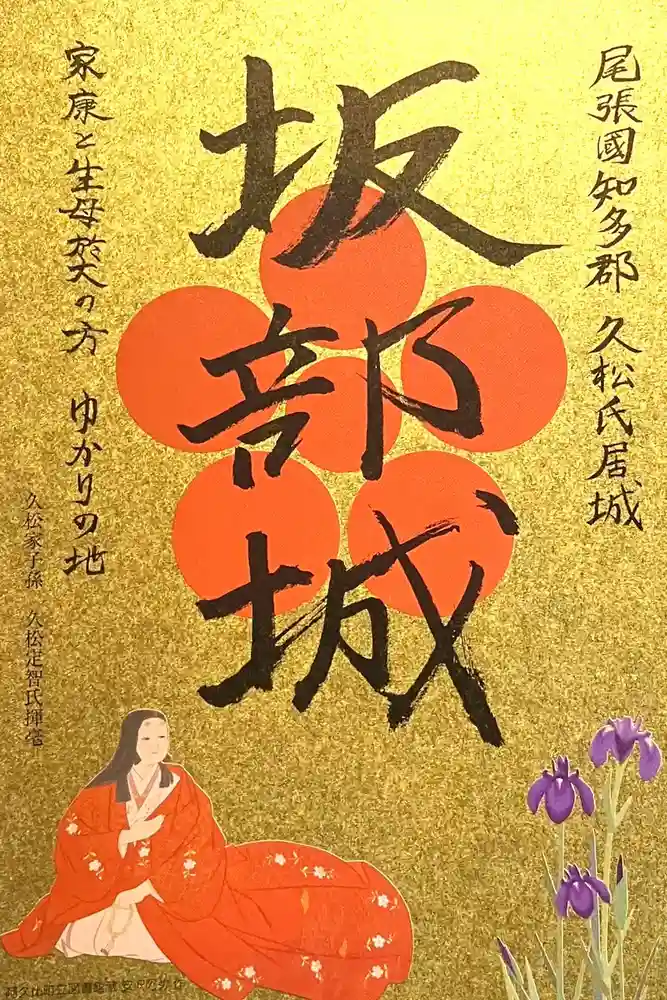 尾張國知多郡 久松氏居城
坂部城
家康と生母於大の方 ゆかりの地
久松家子孫 久松定智氏揮毫